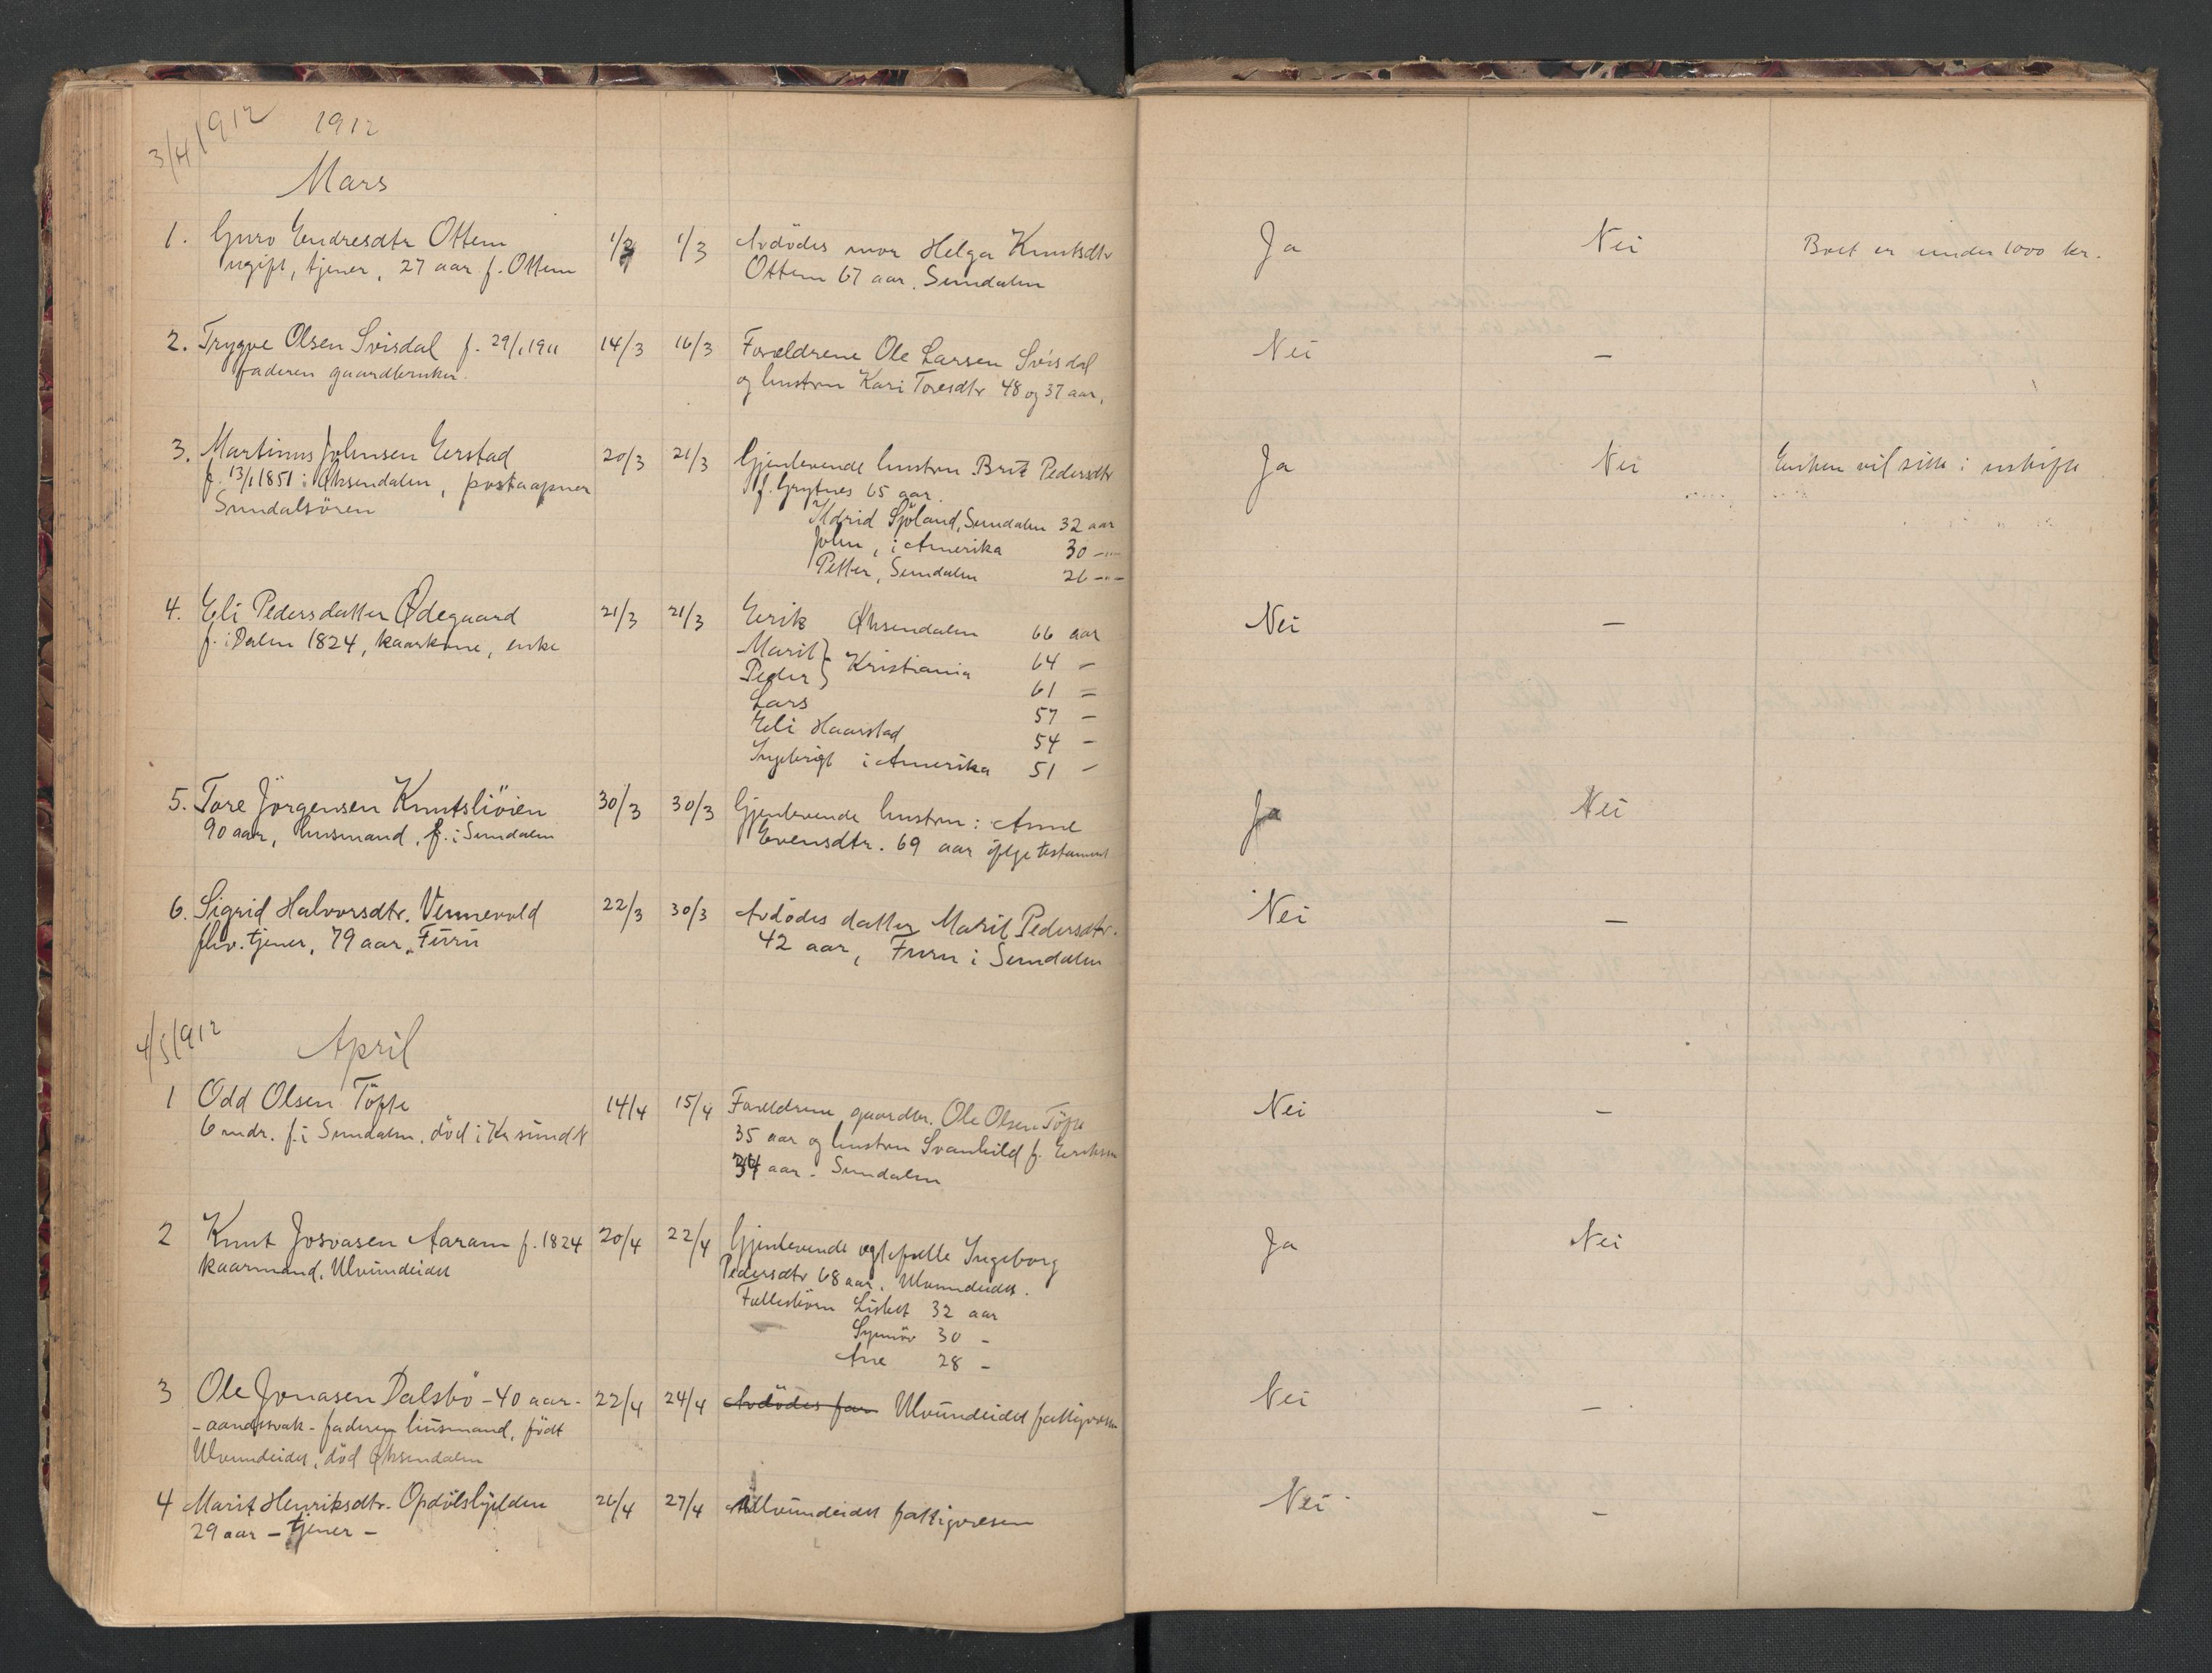 3/4 1912 1912
Mars
1. Guro Endresdtr Ottem 1/3 1/3 Avdödes mor Helga Knutsdtr Ja Nei Boet er under 1000 kr.
ugift, tjener, 27 aar f. Ottem Ottem 67 aar, Sundalen
2. Trygve Olsen Svisdal f. 29/1 1911 14/3 16/3 Forældrene Ole Larsen Svisdal Nei –
faderen gaardbruker. og hustru Kari Toresdtr 48 og 37 aar.
3. Martinus Johnsen Erstad 20/3 21/3 Gjenlevende hustru Brit Pedersdtr Ja Nei Enken vil sitte i uskifte
f. 13/1 1851 i Øksendalen, postaapner f. Grytnes 65 aar.
Sundalsören Ildrid Sjöland, Sundalen 32 aar
John, i Amerika 30 –"–
Petter, Sundalen 26 –"–
4. Eli Pedersdatter Ødegaard 21/3 21/3 Eerik Øksendalen 66 aar Nei –
f. i Dalen 1824, kaarkone, enke Marit } Kristiania 64 –
Peder } 61 =
Lars 57 –
Eli Haarstad 54 –
Ingebrigt i Amerika 51 –
5. Tore Jörgensen Knutsliöien 30/3 30/3 Gjenlevende hustru: Anne Ja Nei
90 aar, husmand, f. i Sundalen Evensdtr. 69 aar ifølge testament
6. Sigrid Halvorsdtr. Vennevold 22/3 30/3 Avdödes datter Marit Pedersdtr. Nei –
fhv. tjener, 79 aar, Furu 42 aar, Furu i Sundalen
4/5 1912 April
1 Odd Olsen Töfte 14/4 15/4 Forældrene gaardbr. Ole Olsen Töfte Nei –
6 mdr. f. i Sundalen, död i Kr sund N 35 aar og hustru Svanhild f. Eriksen
34 aar. Sundalen
2 Knut Josvasen Aaram f. 1824 20/4 22/4 Gjenlevende egtefælle Ingeborg Ja Nei
kaarmand, Ulvundeidet Pedersdtr 68 aar, Ulvundeidet.
Fællesbörn Lisbet 32 aar
Synnöv 30 –
Ane 28 –
3 Ole Jonasen Dalsbö – 40 aar – 22/4 24/4 Avdödes far Ulvundeidet fattigvæsen Nei –
– aandssvak – faderen husmand, födt
Ulvundeidet, död Øksendalen
4 Marit Henriksdtr. Opdölshjelden 26/4 27/4 Ulvundeidet fattigvæsen Nei –
29 aar – tjener –